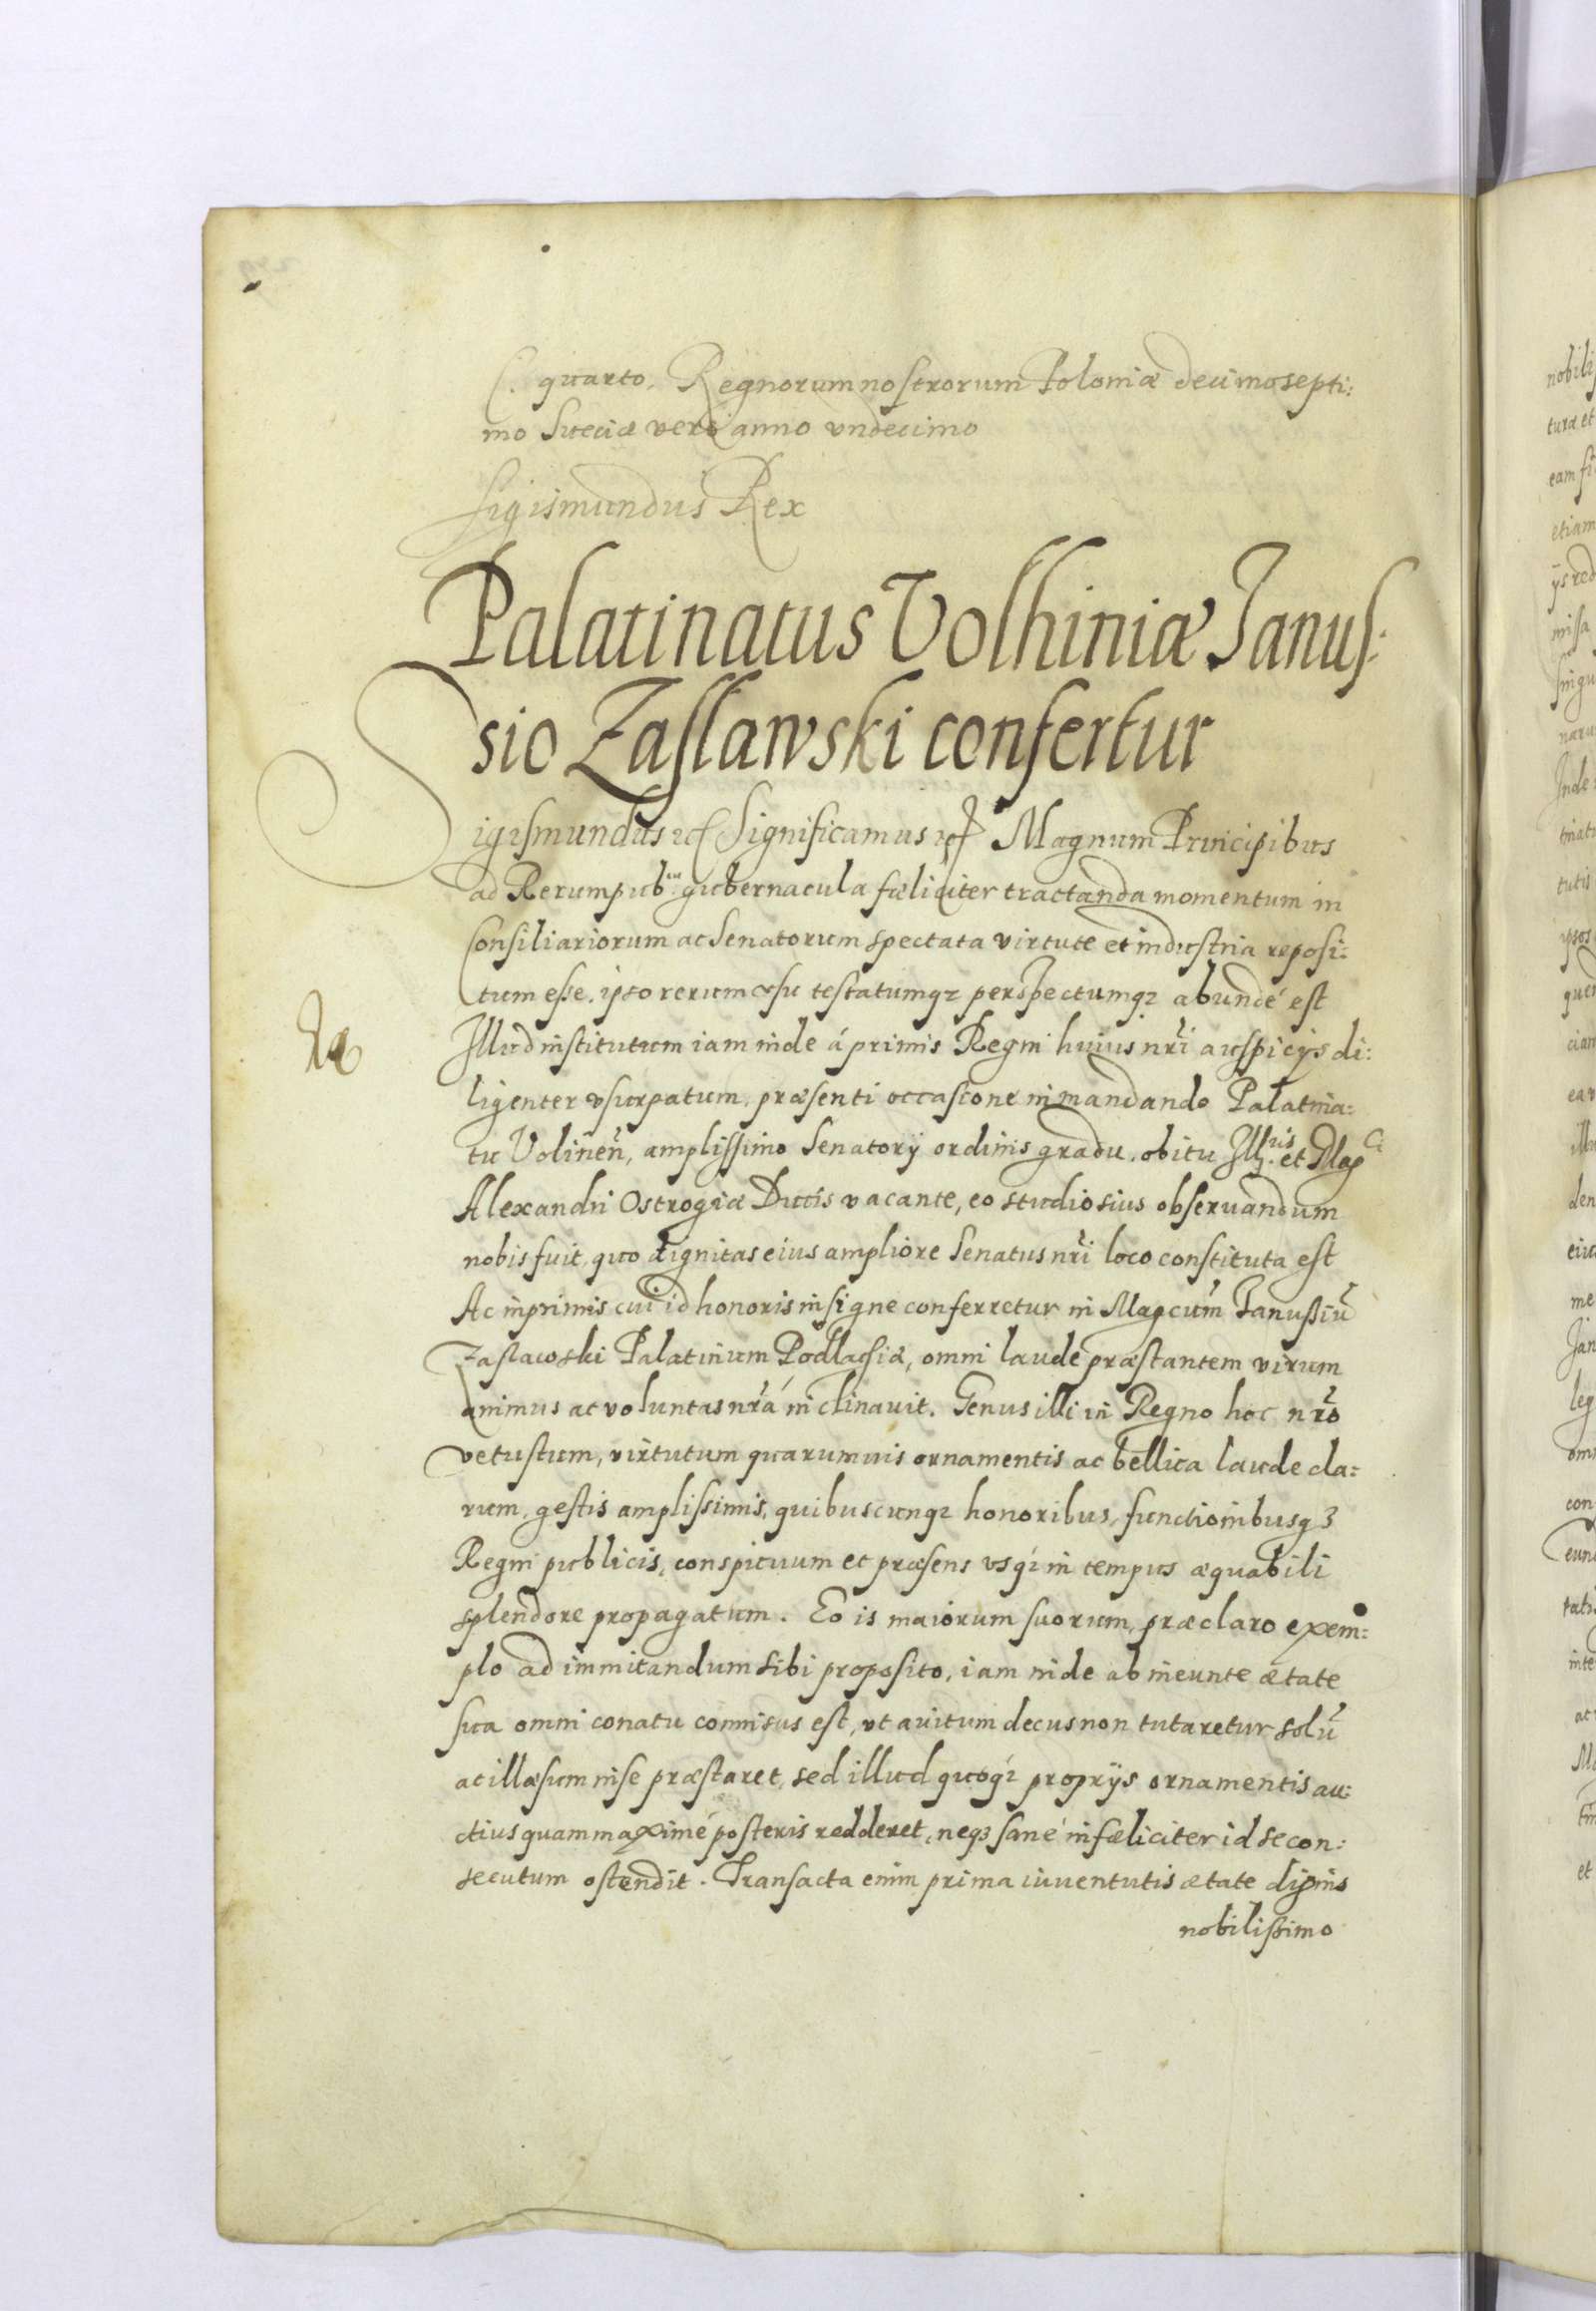 C. quarto. Regnorum nostrorum Poloniæ decimosepti:
mo Sueciæ vero anno vndecimo
Sigismundus Rex
Palatinatus Volhiniæ Janus:
sio Zaslawski confertur
Sigismundus etc Significamus etc Magnum Principibus
ad Rerumpub: gubernacula fœliciter tractanda momentum in
Consiliariorum ac Senatorum spectata virtute et industria reposi:
tum esse, ipso rerum vsu testatumq3 perspectumq3 abundé est
Illud institutum iam inde á primis Regni huius nr̃i auspicijs di:
ligenter vsurpatum, præsenti occasione in mandando Palatina:
tu Volineñ, amplissimo Senatorij ordinis gradu, obitu Illris et Mag ci
Alexandri Ostrogiæ Ducis vacante, eo studiosius obseruandum
nobis fuit, quo dignitas eius ampliore Senatus nr̃i loco constituta est
Ac inprimis cui id honoris insigne conferretur in Magcum Janussiũ
Zaslawski Palatinum Podlachiæ, omni laude præstantem virum
animus ac voluntas nr̃a inclinauit. Genus illi in Regno hoc nr̃o
vetustum, virtutum quarumuis ornamentis ac bellica laude cla:
rum, gestis amplissimis, quibuscunq3 honoribus, functionibusq3
Regni publicis, conspicuum et præsens vsq3 in tempus æquabili
splendore propagatum. Eo is maiorum suorum, præclaro exem:
plo ad immitandum sibi proposito, iam inde ab ineunte ætate
sua omni conatu connisus est, vt auitum decus non tutaretur solũ
ac illæsum in se præstaret, sed illud quoq3 proprijs ornamentis au:
ctius quam maximé posteris redderet, neq3 sané infœliciter id se con:
secutum ostendit. Transacta enim prima iuuentutis ætate dignis
nobilissimo